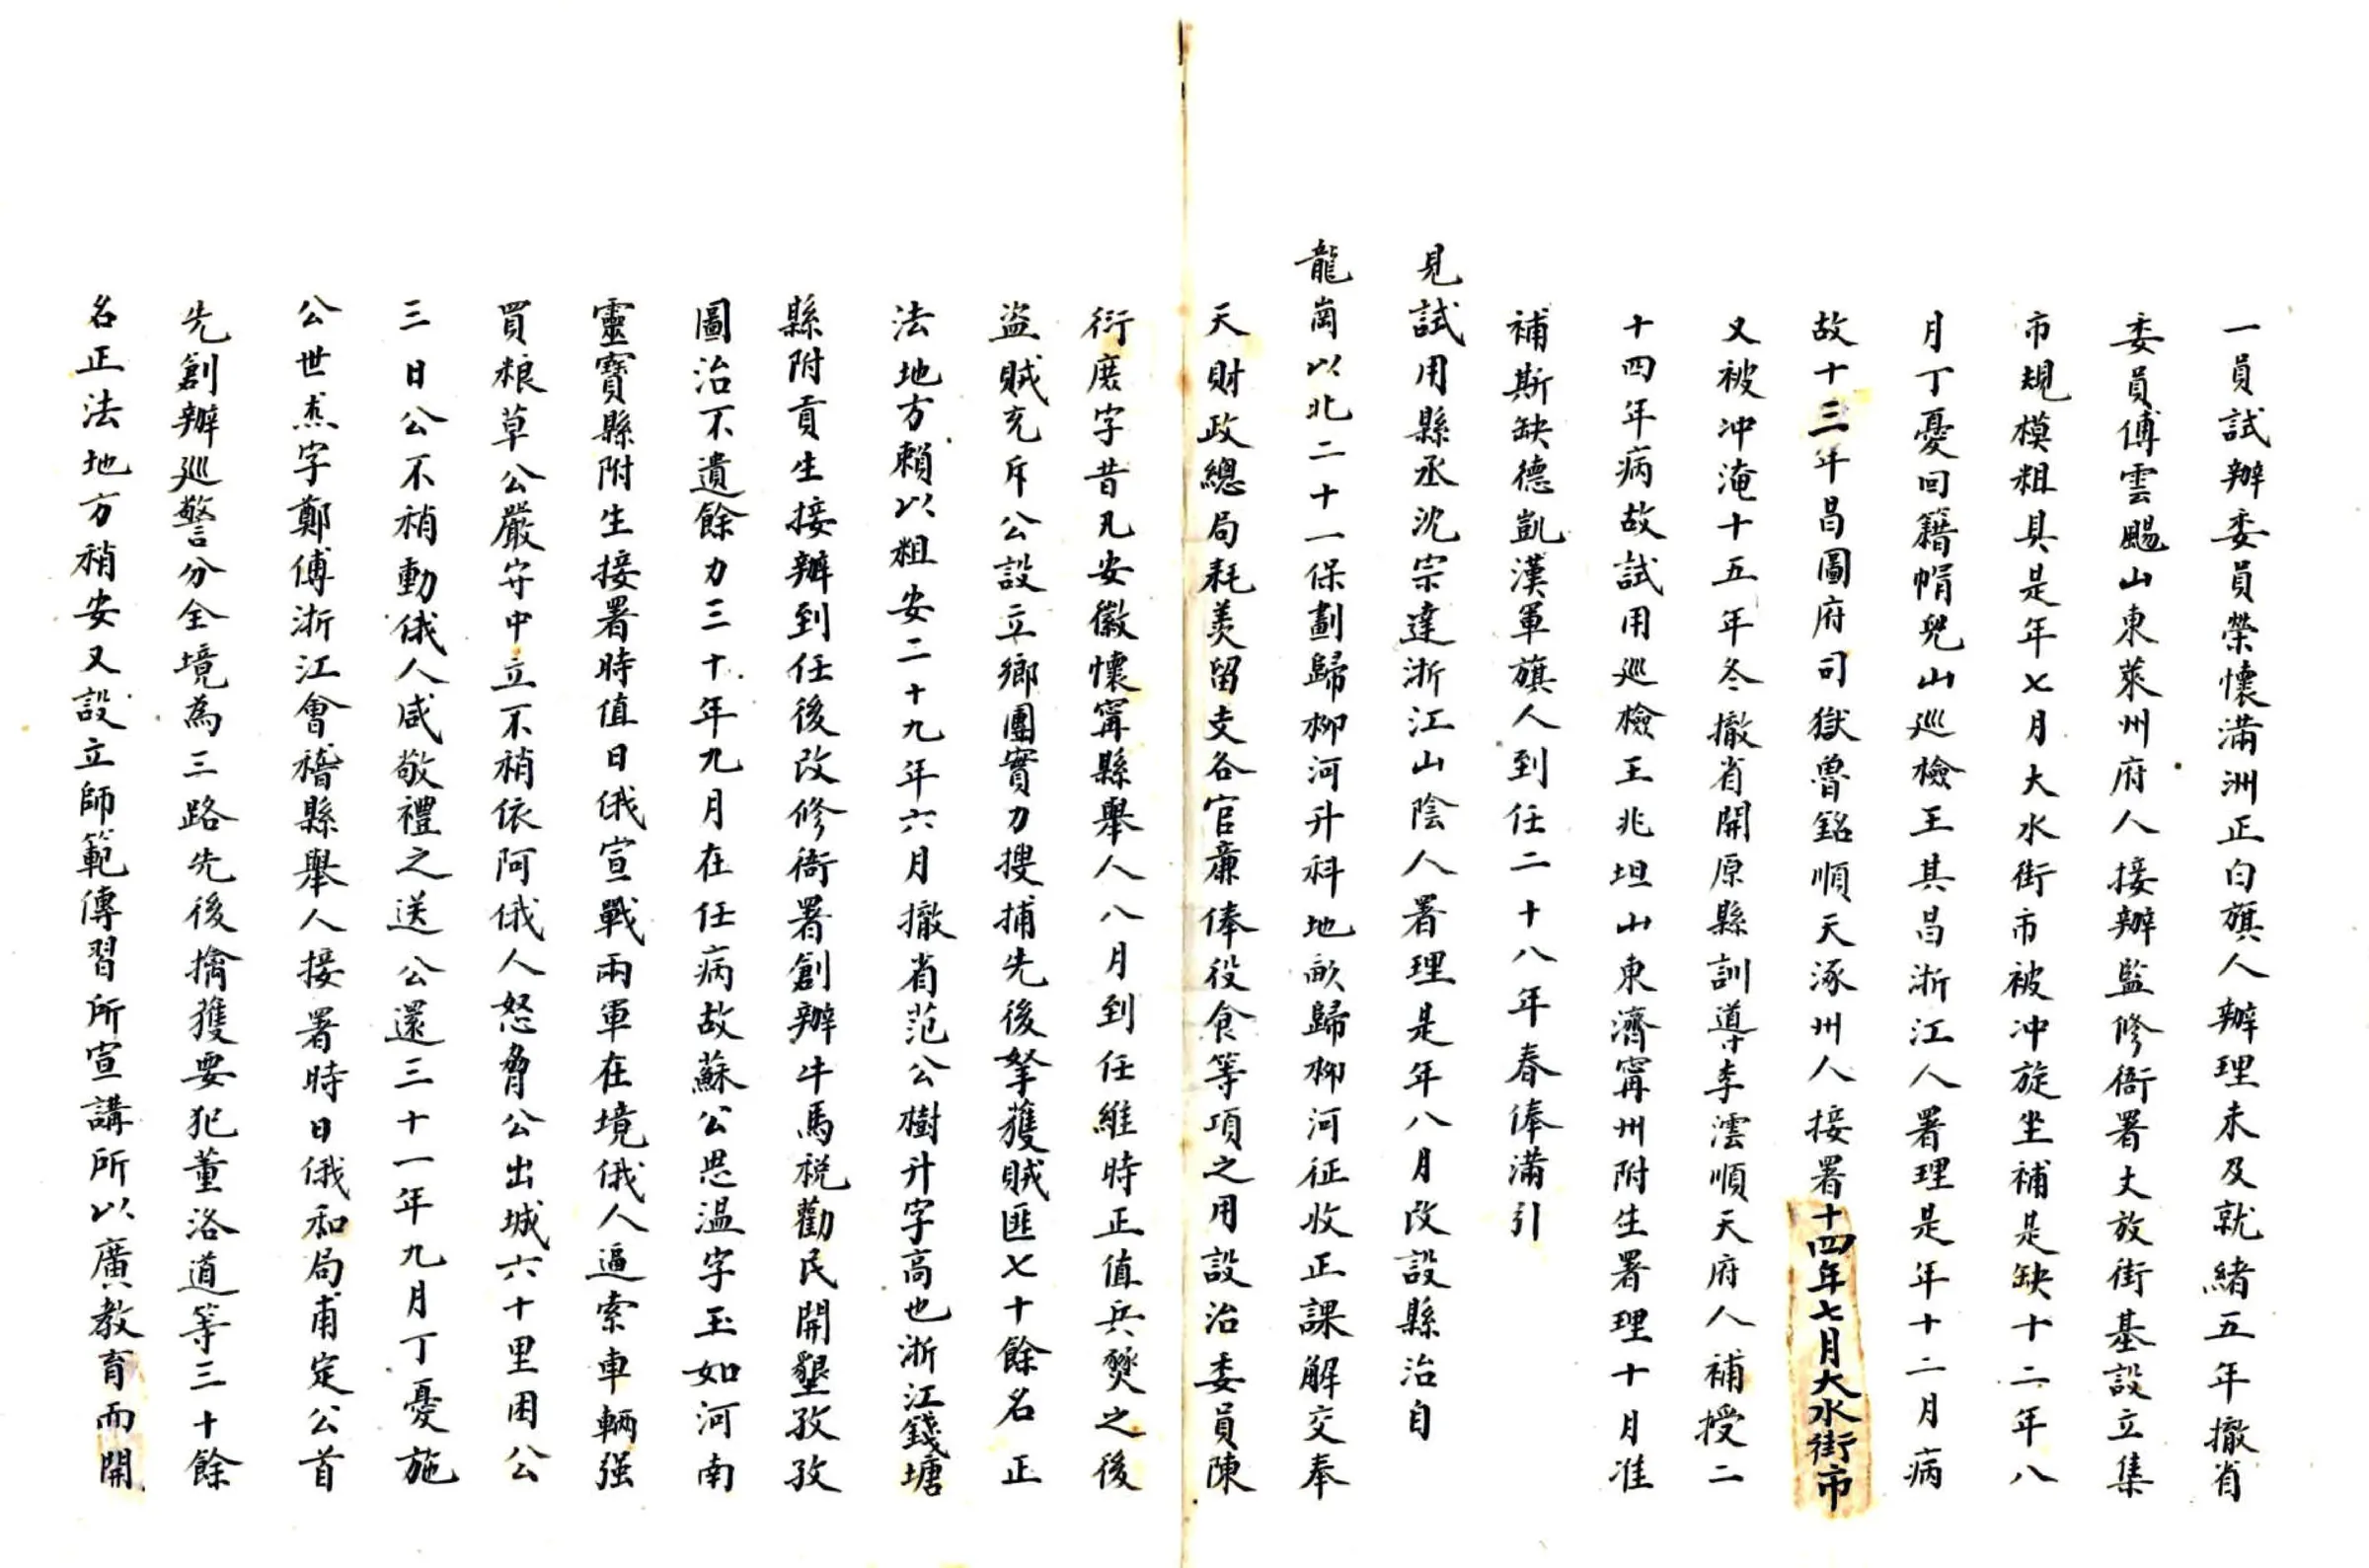 一員試辦委員榮懷滿洲正白旗人辦理未及就緒五年撤省
委員傅雲颺山東萊州府人接辦監修衙署丈放街基設立集
市規模粗具是年七月大水街市被冲旋坐補是缺十二年八
月丁憂回籍帽兜山巡檢王其昌浙江人署理是年十二月病
故十三年昌圖府司獄魯銘順天涿州人接署十四年七月大水街市
又被冲淹十五年冬撤省開原縣訓導李澐順天府人補授二
十四年病故試用巡檢王兆坦山東濟甯州附生署理十月准
補斯缺德凱漢軍旗人到任二十八年春俸滿引
見試用縣丞沈宗達浙江山陰人署理是年八月改設縣治自
龍崗以北二十一保劃歸柳河升科地畝歸柳河征收正課解交奉
天財政總局耗羡留支各官廉俸役食等項之用設治委員陳
衍庶字昔凡安徽懷甯縣舉人八月到任維時正值兵燹之後
盜賊充斥公設立鄉團實力搜捕先後拏獲賊匪七十餘名正
法地方賴以粗安二十九年六月撤省范公樹升字高也浙江錢塘
縣附貢生接辦到任後改修衙署創辦牛馬税勸民開墾孜孜
圖治不遺餘力三十年九月在任病故蘇公思温字玉如河南
靈寶縣附生接署時值日俄宣戰兩軍在境俄人逼索車輛强
買粮草公嚴守中立不稍依阿俄人怒脅公出城六十里困公
三日公不稍動俄人咸敬禮之送公還三十一年九月丁憂施
公世杰字鄭傅浙江會稽縣舉人接署時日俄和局甫定公首
先創辦巡警分全境為三路先後擒獲要犯董洛道等三十餘
名正法地方稍安又設立師範傳習所宣講所以廣教育而開